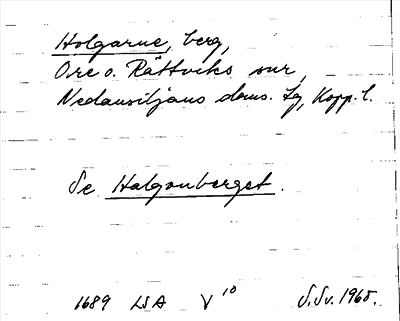 Holgarne, berg,
Ore o. Rättviks snr,
Nedansiljans doms. Lg, Kopp. l.
Se Halgonberget.
1689 LSA V 10 S.Sv. 1965.